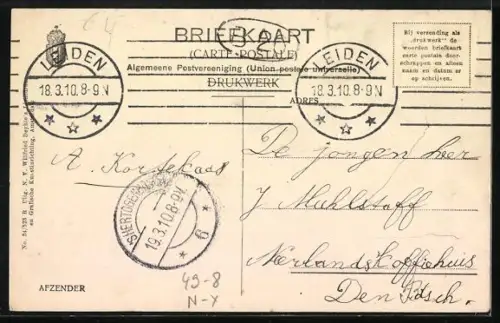 64
BRIEFKAART
(CARTE POSTALE)
Algemeene Postvereeniging (Union postale universelle)
DRUKWERK
ADRES
Bij verzending als
„drukwerk” de
woorden briefkaart
carte postale door-
schrappen en alleen
naam en datum er
op schrijven.
LEIDEN
18.3.10.8-9N
LEIDEN
18.3.10.8-9N
De jongen heer
A. Kortekaas
J Mahlstaff
'SHERTOGENBOSCH
19.3.10.8-9V.
6
Nerlands Koffiehuis
Den Bosch.
AFZENDER
49-8
N-X
en Grafische Kunstinrichting, Amsterdam